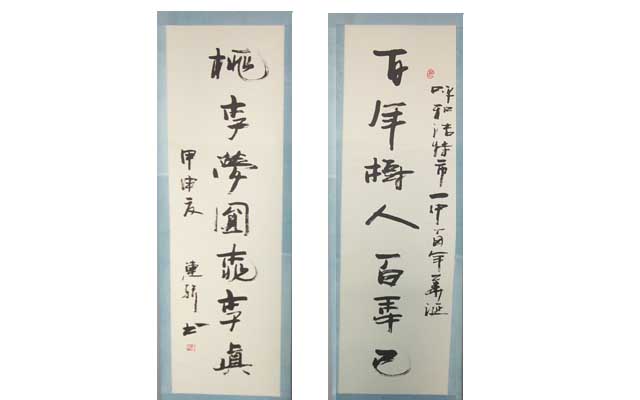 呼和浩特市一中百年華誕
百年樹人百年已
桃李夢圓桃李真
甲申夏 連 書